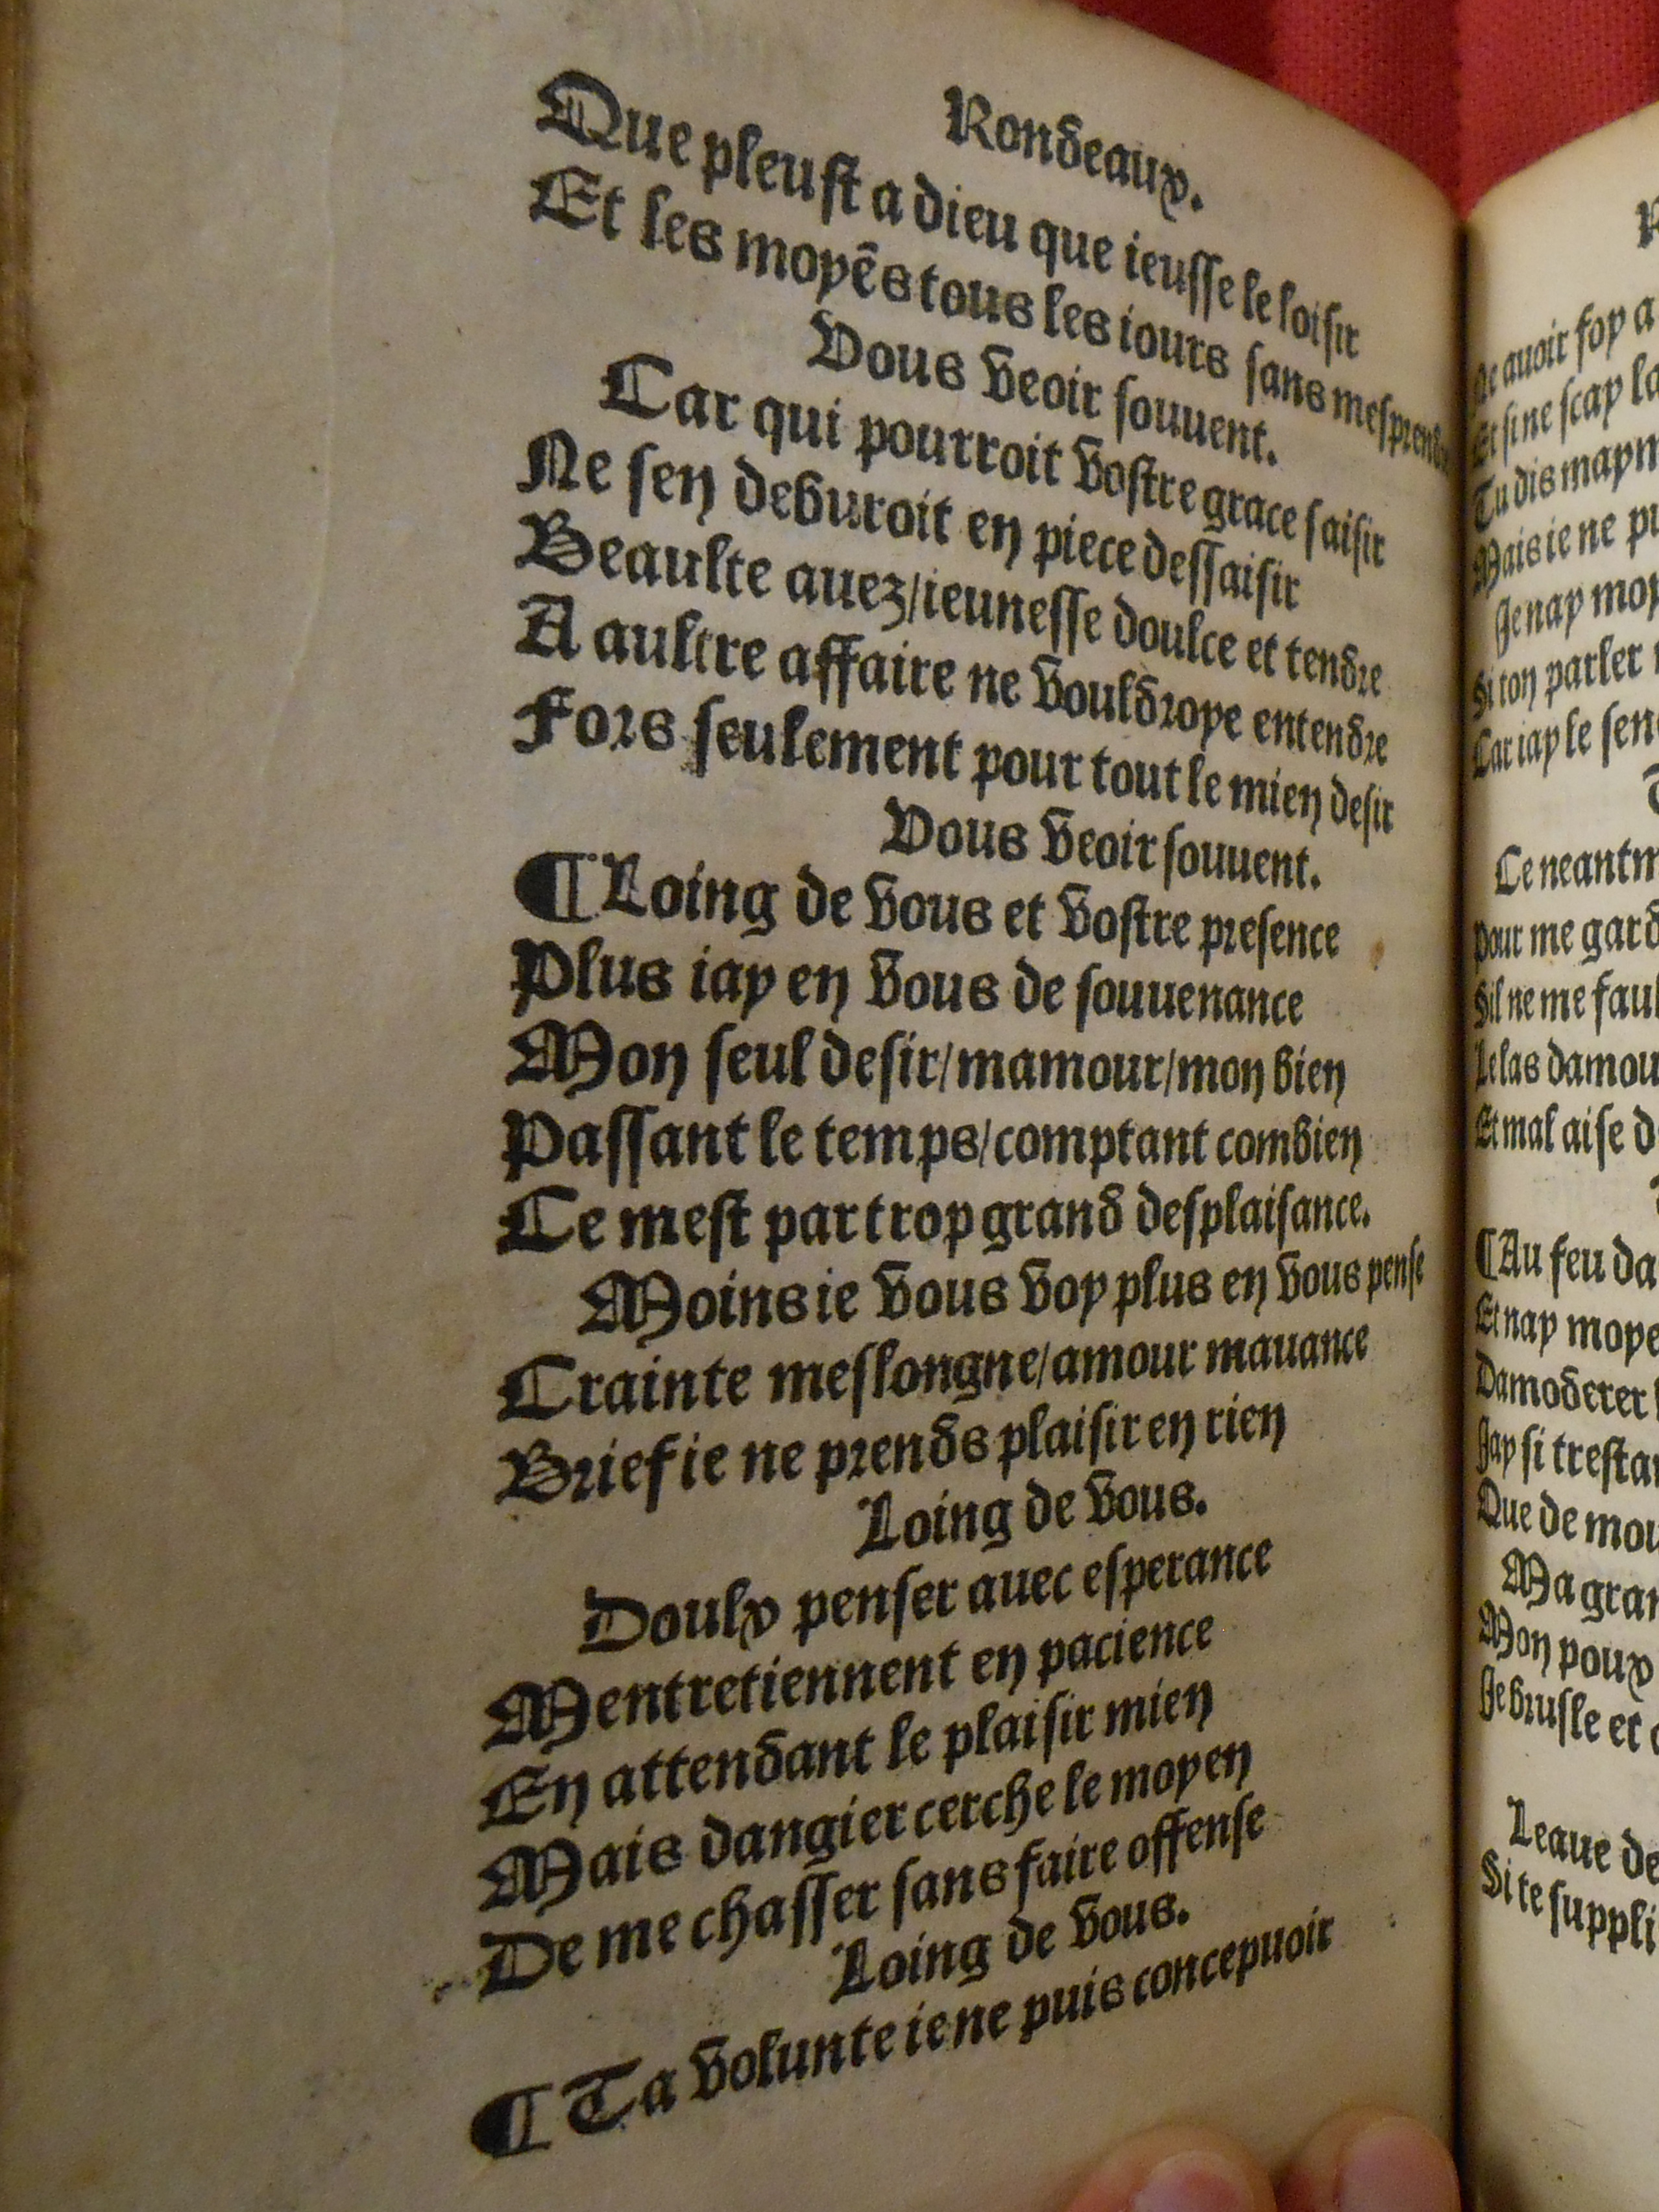 Rondeaux.
Que pleust a dieu que ieusse le loisir
Et les moyēs tous les iours sans mesprendre
Vous veoir souuent.
Car qui pourroit vostre grace saisir
Ne sen deburoit en piece dessaisir
Beaulte auez/ieunesse doulce et tendre
A aultre affaire ne vouldroye entendre
Fors seulement pour tout le mien desir
Vous veoir souuent.
¶ Loing de vous et vostre presence
Plus iay en vous de souuenance
Mon seul desir/mamour/mon bien
Passant le temps/comptant combien
Ce mest par trop grand desplaisance.
Moins ie vous voy plus en vous pense
Crainte meslongne/amour mauance
Brief ie ne prends plaisir en rien
Loing de vous.
Doulx penser auec esperance
Mentretiennent en pacience
En attendant le plaisir mien
Mais dangier cerche le moyen
De me chasser sans faire offense
Loing de vous.
¶ Ta volunte ie ne puis concepuoir
auoir foy a
Et si ne scay
Tu dis
Mais ie ne
Je nay
Si ton parler
Car iay le
Ce
Pour me
Sil ne me
Le las
Et mal aise
¶ Au feu
Et nay
Damoderer
Jay si
Que de
Ma
Mon poux
Je brusle et
Leaue de
Si te